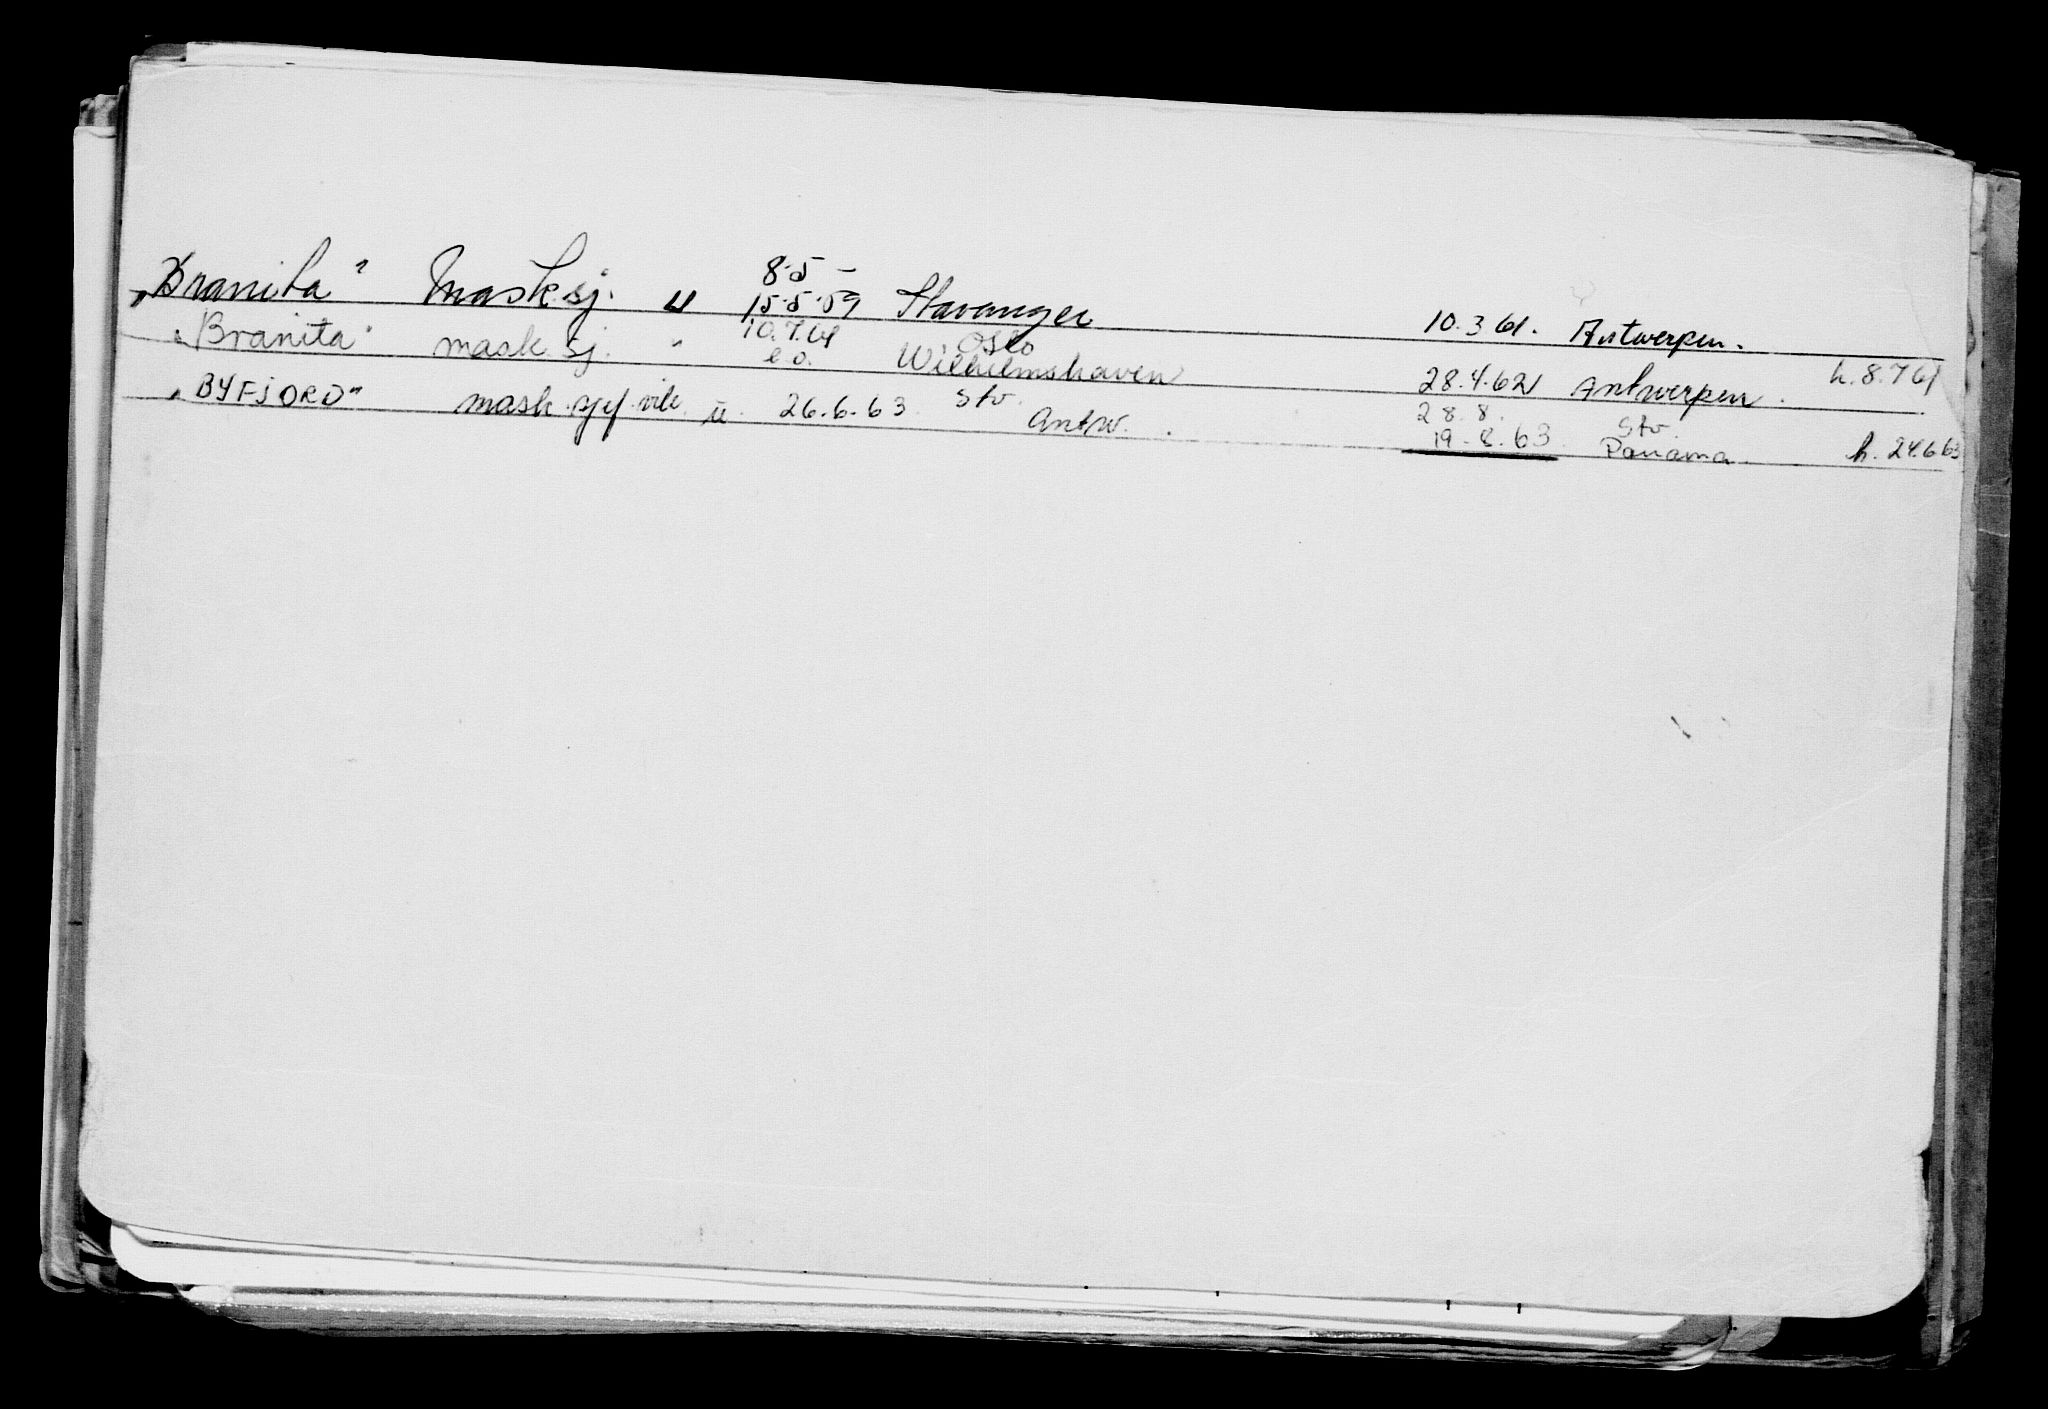 8.5 -
„Branita" Mask.sj. " 15.5.59 Stavanger 10.3 61. Antwerpen.
10.7.61 Oslo
„Branita" mask sj. " e.o. Wilhelmshaven 28.4.62 Antwerpen. h. 8.7 61
28.8. Stv.
„BYFJORD" mask.sjef.vik. u. 26.6.63 Stv. Antw. 19.8.63 Panama. h. 24.6 63